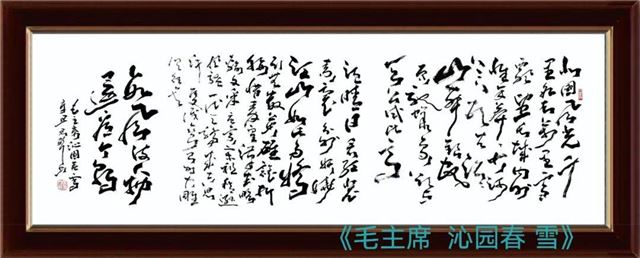 北国风光千
里冰封万里雪
飘望长城内外
惟余莽莽
大河上下顿失滔滔
山舞银蛇
原驰蜡象欲与
天公试比高
须晴日看红装
素裹分外妖娆
江山如此多娇
引无数英雄竞折
腰惜秦皇汉武略
输文采唐宗宋祖稍逊
风骚一代天骄成吉思
汗只识弯弓射大雕
俱往矣
数风流人物
还看今朝
毛主席沁园春雪
《毛主席 沁园春 雪》